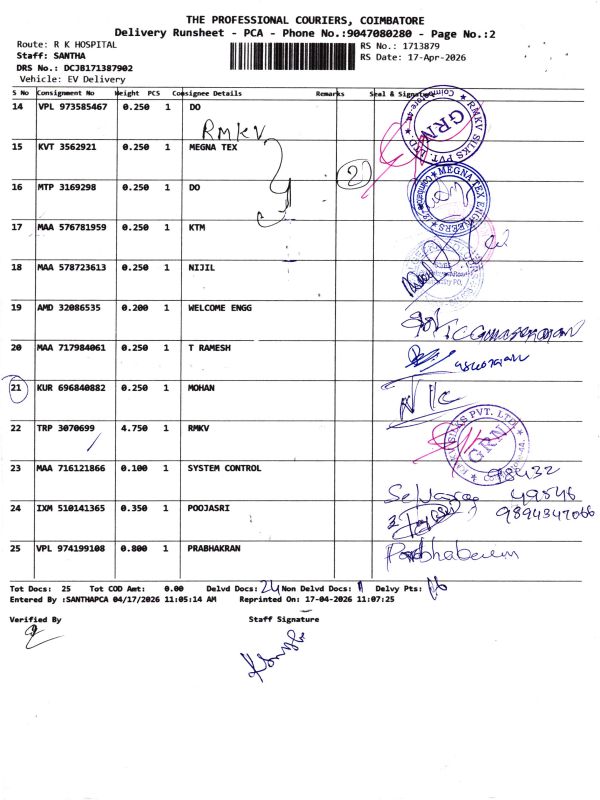 THE PROFESSIONAL COURIERS, COIMBATORE
Delivery Runsheet - PCA - Phone No.:9047080280 - Page No.:2
Route: R K HOSPITAL
Staff: SANTHA
DRS No.: DCJB171387902
Vehicle: EV Delivery
RS No.: 1713879
RS Date: 17-Apr-2026
S No Consignment No Weight PCS Consignee Details Remarks Seal & Signature
14 VPL 973585467 0.250 1 DO
RMKV
RMKV SILKS PVT. LTD. GRN Coimbatore-4A.
15 KVT 3562921 0.250 1 MEGNA TEX
2
MEGNA TEX ENGINEERS
16 MTP 3169298 0.250 1 DO
17 MAA 576781959 0.250 1 KTM
18 MAA 578723613 0.250 1 NIJIL
19 AMD 32086535 0.200 1 WELCOME ENGG
20 MAA 717984061 0.250 1 T RAMESH
21 KUR 696840882 0.250 1 MOHAN
N/c
22 TRP 3070699 4.750 1 RMKV
SILKS PVT. LTD. GRN
23 MAA 716121866 0.100 1 SYSTEM CONTROL
98432
49546
24 IXM 510141365 0.350 1 POOJASRI
9894347066
25 VPL 974199108 0.800 1 PRABHAKRAN
Tot Docs: 25 Tot COD Amt: 0.00 Delvd Docs: 24 Non Delvd Docs: 1 Delvy Pts:
Entered By :SANTHAPCA 04/17/2026 11:05:14 AM Reprinted On: 17-04-2026 11:07:25
Verified By Staff Signature